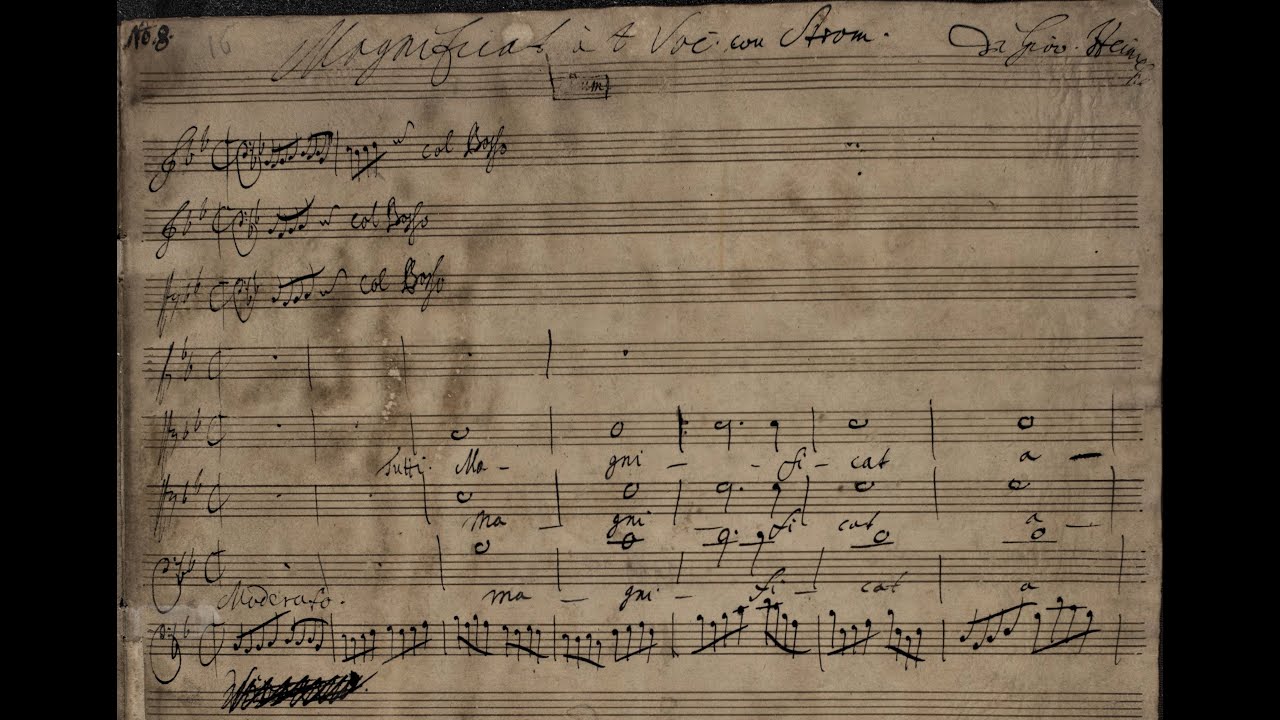 No. 8. 16 Magnificat à 4 Voc: con Strom. Di Giov. Hein
col Basso
col Basso
col Basso
Tutti. Ma - gni - - fi - cat a -
ma - gni - fi cat a -
Moderato. ma - gni - fi - cat a